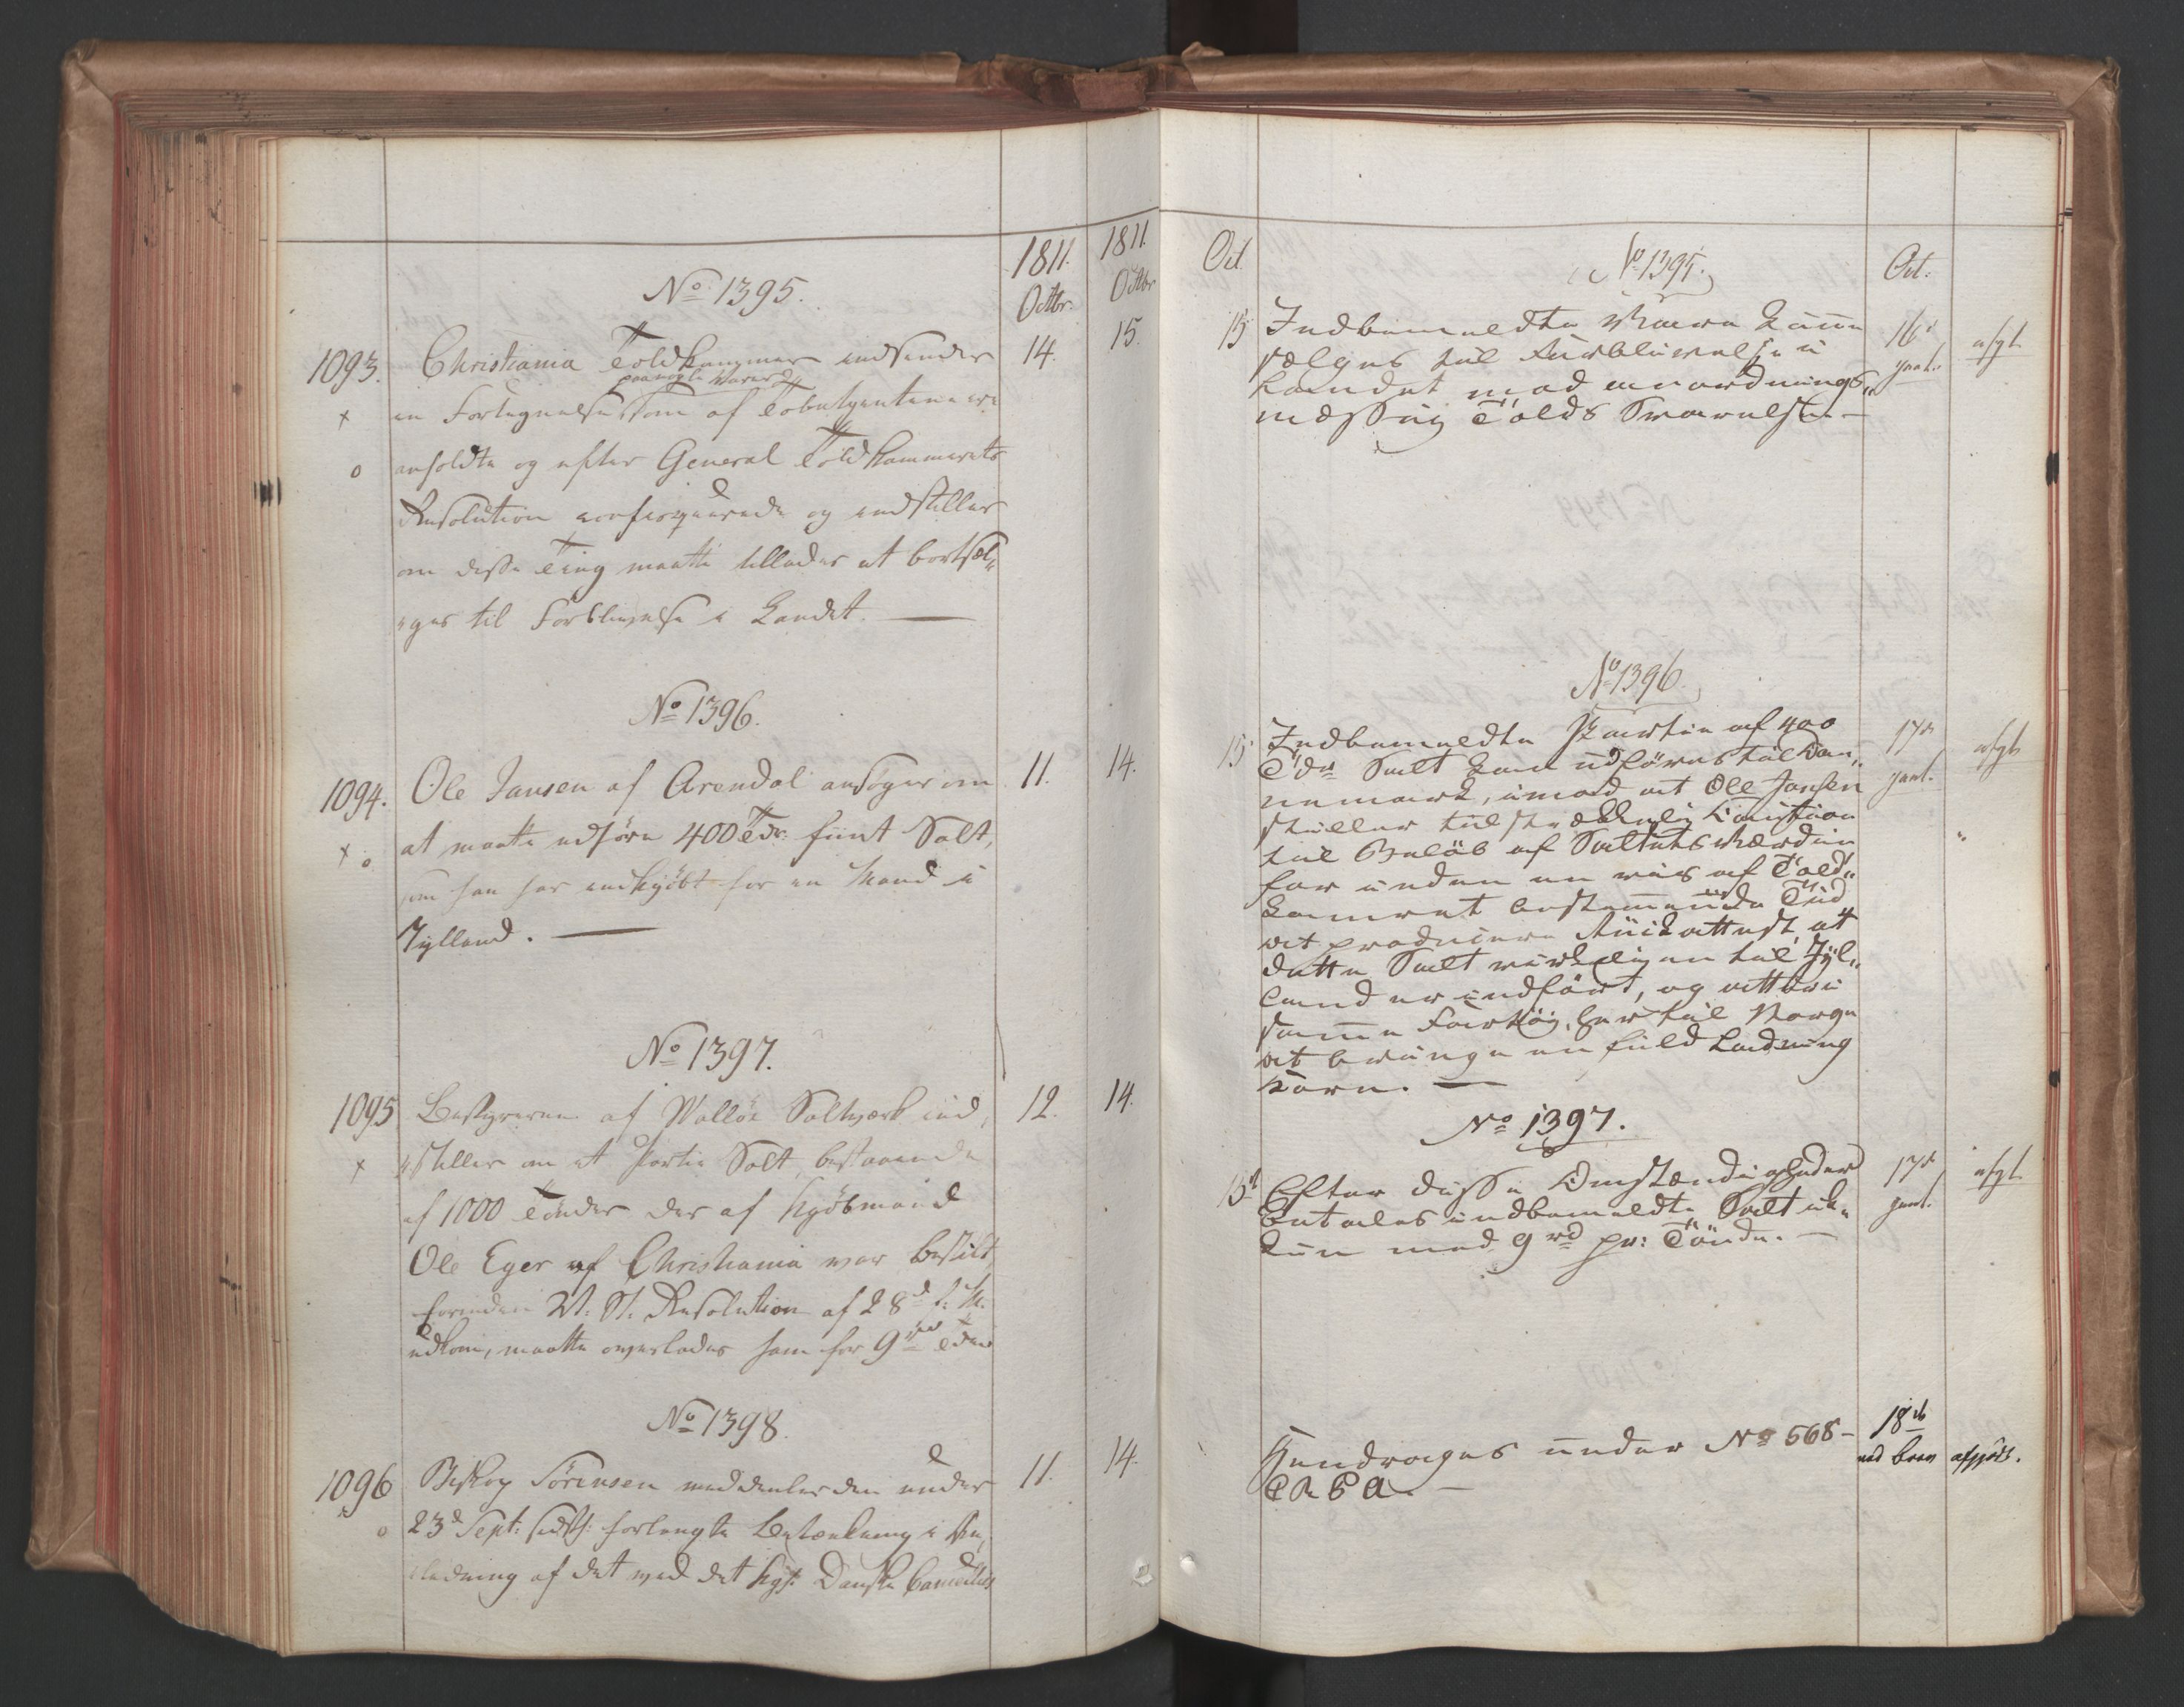 1811. Octbr.
1811. Octbr
No 1395.
1093. Christiania Toldkammer indsender 14. 15.
paa nogle Varer
en Fortegnelse som af Toldbetjentene ere
anholdte og efter General Toldkammerets
Resolution confisquerede og indstiller
om disse Ting maatte tillades at bortsæl„
„ges til Forblivelse i Landet. —
No 1396.
1094. Ole Jansen af Arendal ansøger om 11. 14.
at maatte udføre 400 Tdr. fiint Salt,
som han har indkjøbt for en Mand i
Jylland. —
No 1397.
1095 Bestyreren af Walløe Saltværk ind„ 12. 14.
„stiller om et Partie Salt, bestaaende
af 1000 Tønder der af Kjøbmand
Ole Eger af Christiania var bestilt
forinden Resolution af 28d f: M:
udkom, maatte overlades ham for 9 rd Tdr
No 1398.
1096 Biskop Sörensen meddeeler den under 11. 14.
23d Sept: sidstl: forlangte Betænkning i An„
„ledning af det ved det kgl: Danske Cancellies
Oct. Oct.
No 1395.
15 Indbemeldte Varer kunne 16d
sælges til Forblivelse i afgt.
Landet mod anordnings„
mæssig Tolds Svarelse. —
No 1396.
15 Indbemeldte Partie af 400 17d
Tdr Salt kan udføres til Dan„ afgt
nemark, imod at Ole Jansen
stiller tilstrækkelig Caution
til Beløb af Saltets Værdie
for inden en vis af Told„
kamret bestemmende Tid
at producere Attest at
dette Salt virkeligen til Jyl„
land er indført, og atter i
samme Fartøi, her til Norge
at bringe en fuld Ladning
Korn. —
No 1397.
15d Efter disse Omstændigheder 17d
betales indbemeldte Salt ik„ afgt
kun med 9 rd pr: Tönde. —
Hendrages under No 568 – 18de
ved brev afgjört.